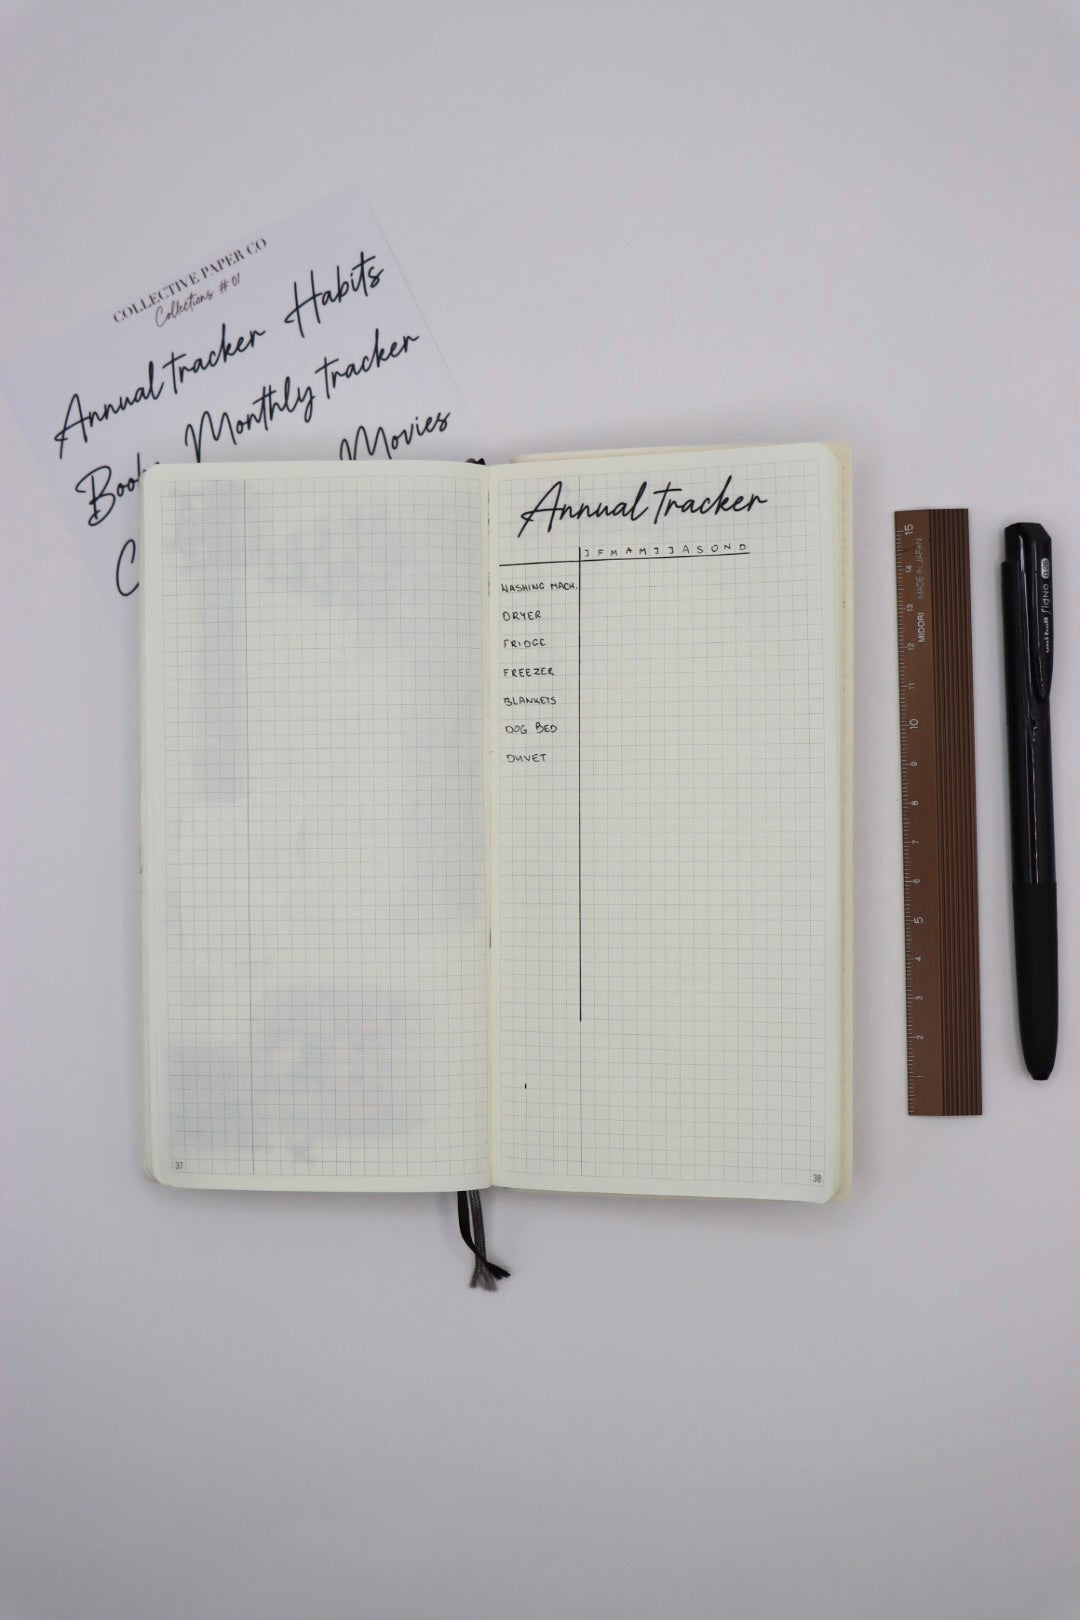 COLLECTIVE PAPER CO
Collections #01
Annual tracker Habits
Monthly tracker
Movies
Annual tracker
J F M A M J J A S O N D
WASHING MACH.
DRYER
FRIDGE
FREEZER
BLANKETS
DOG BED
DUVET
37
38
15 14 13 12 11 10 9 8 7 6 5 4 3 2 1
MIDORI MADE IN JAPAN
uni-ball Signo 0.28